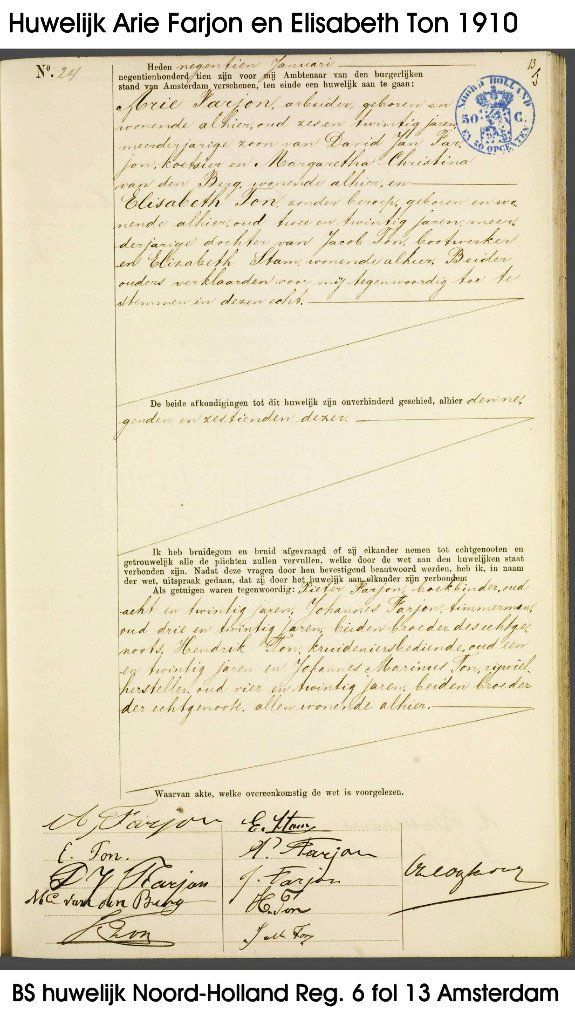 Huwelijk Arie Farjon en Elisabeth Ton 1910
13
Nº. 24
Heden negentien Januari
negentienhonderd tien zijn voor mij Ambtenaar van den burgerlijken
stand van Amsterdam verschenen, ten einde een huwelijk aan te gaan:
NOORD HOLLAND
50 C.
EN 30 OPCENTEN
Arie Farjon, arbeider, geboren en
wonende alhier, oud zes en twintig jaren,
meerderjarige zoon van David Jan Far-
jon, koetsier en Margaretha Christina
van den Berg, wonende alhier, en
Elisabeth Ton, zonder beroep, geboren en wo-
nende alhier, oud twee en twintig jaren, meer-
derjarige dochter van Jacob Ton, bootwerker
en Elizabeth Stam, wonende alhier. Beider
ouders verklaarden voor mij tegenwoordig toe te
stemmen in dezen echt.
De beide afkondigingen tot dit huwelijk zijn onverhinderd geschied, alhier den ne-
genden en zestienden dezer.
Ik heb bruidegom en bruid afgevraagd of zij elkander nemen tot echtgenooten en
getrouwelijk alle de plichten zullen vervullen, welke door de wet aan den huwelijken staat
verbonden zijn. Nadat deze vragen door hen bevestigend beantwoord werden, heb ik, in naam
der wet, uitspraak gedaan, dat zij door het huwelijk aan elkander zijn verbonden.
Als getuigen waren tegenwoordig: Pieter Farjon, boekbinder, oud
acht en twintig jaren, Johannes Farjon, timmerman,
oud drie en twintig jaren, beiden broeder des echtge-
noots, Hendrik Ton, kruideniersbediende, oud een
en twintig jaren en Johannes Marinus Ton, rijwiel
hersteller, oud vier en twintig jaren, beiden broeder
der echtgenoote, allen wonende alhier.
Waarvan akte, welke overeenkomstig de wet is voorgelezen.
A, Farjon
E. Stam
E. Ton.
P. Farjon
D J Farjon
J. Farjon
MC van den Berg
H. Ton
J. Ton
J M Ton
BS huwelijk Noord-Holland Reg. 6 fol 13 Amsterdam